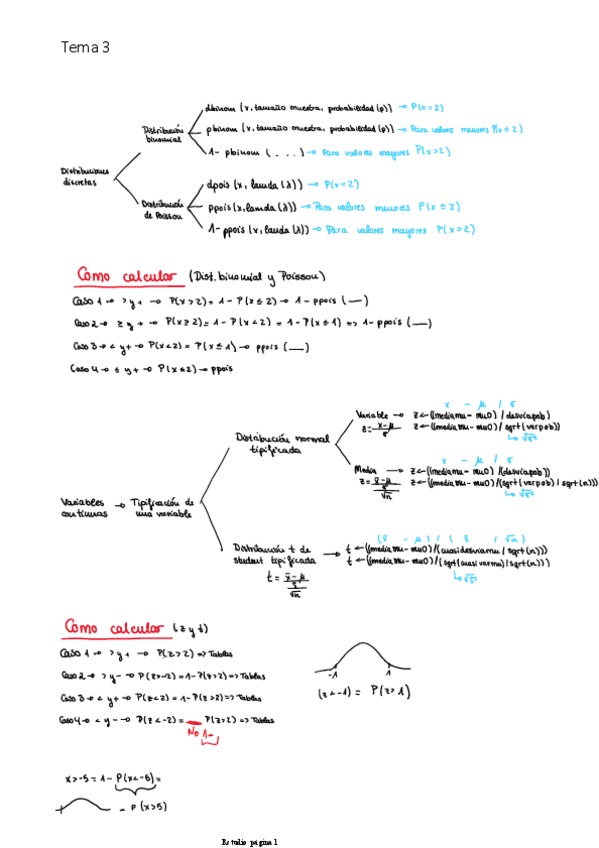 Tema 3
Distribuciones discretas
Distribución binomial
dbinom (x, tamaño muestra, probabilidad (p)) → P(x=2)
pbinom (x, tamaño muestra, probabilidad (p)) → Para valores menores P(x≤2)
1- pbinom (...) → Para valores mayores P(x>2)
Distribución de Poisson
dpois (x, lamda (λ)) → P(x=2)
ppois (x, lamda (λ)) → Para valores menores P(x≤2)
1-ppois (x, lamda (λ)) → Para valores mayores P(x>2)
Como calcular (Dist. binomial y Poisson)
Caso 1 → > y + → P(x>2) = 1 - P(x≤2) → 1-ppois (—)
Caso 2 → ≥ y + → P(x≥2) = 1 - P(x<2) = 1 - P(x≤1) => 1-ppois (—)
Caso 3 → < y + → P(x<2) = P(x≤1) → ppois (—)
Caso 4 → ≤ y + → P(x≤2) → ppois
Variables continuas → Tipificación de una variable
Distribución normal tipificada
x - μ / σ
Variable → z<-((mediamu- mu0) / desviapob)
z<-((mediamu- mu0) / sqrt(varpob))
x - μ / σ
Media → z<-((mediamu- mu0) /(desviapob))
z<-((mediamu- mu0) /(sqrt(varpob) / sqrt(n)))
Distribución t de student tipificada
t<-((mediamu-mu0)/(cuasidesviamu / sqrt(n)))
t<-((mediamu-mu0)/(sqrt(cuasivarmu)/sqrt(n)))
Como calcular (z y t)
Caso 1 → > y + → P(z>2) => Tablas
Caso 2 → > y - → P(z>-2) = 1-P(z>2) => Tablas
Caso 3 → < y + → P(z<2) = 1-P(z>2) => Tablas
Caso 4 → < y - → P(z<-2) = P(z>2) => Tablas
No 1-
-1 1
(z<-1) = P(z>1)
x>-5 = 1- P(x<-5) =
- P(x>5)
Estudio pagina 1